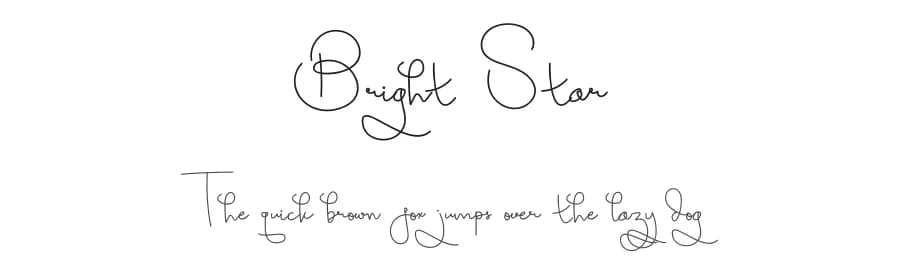 Bright Star
The quick brown fox jumps over the lazy dog